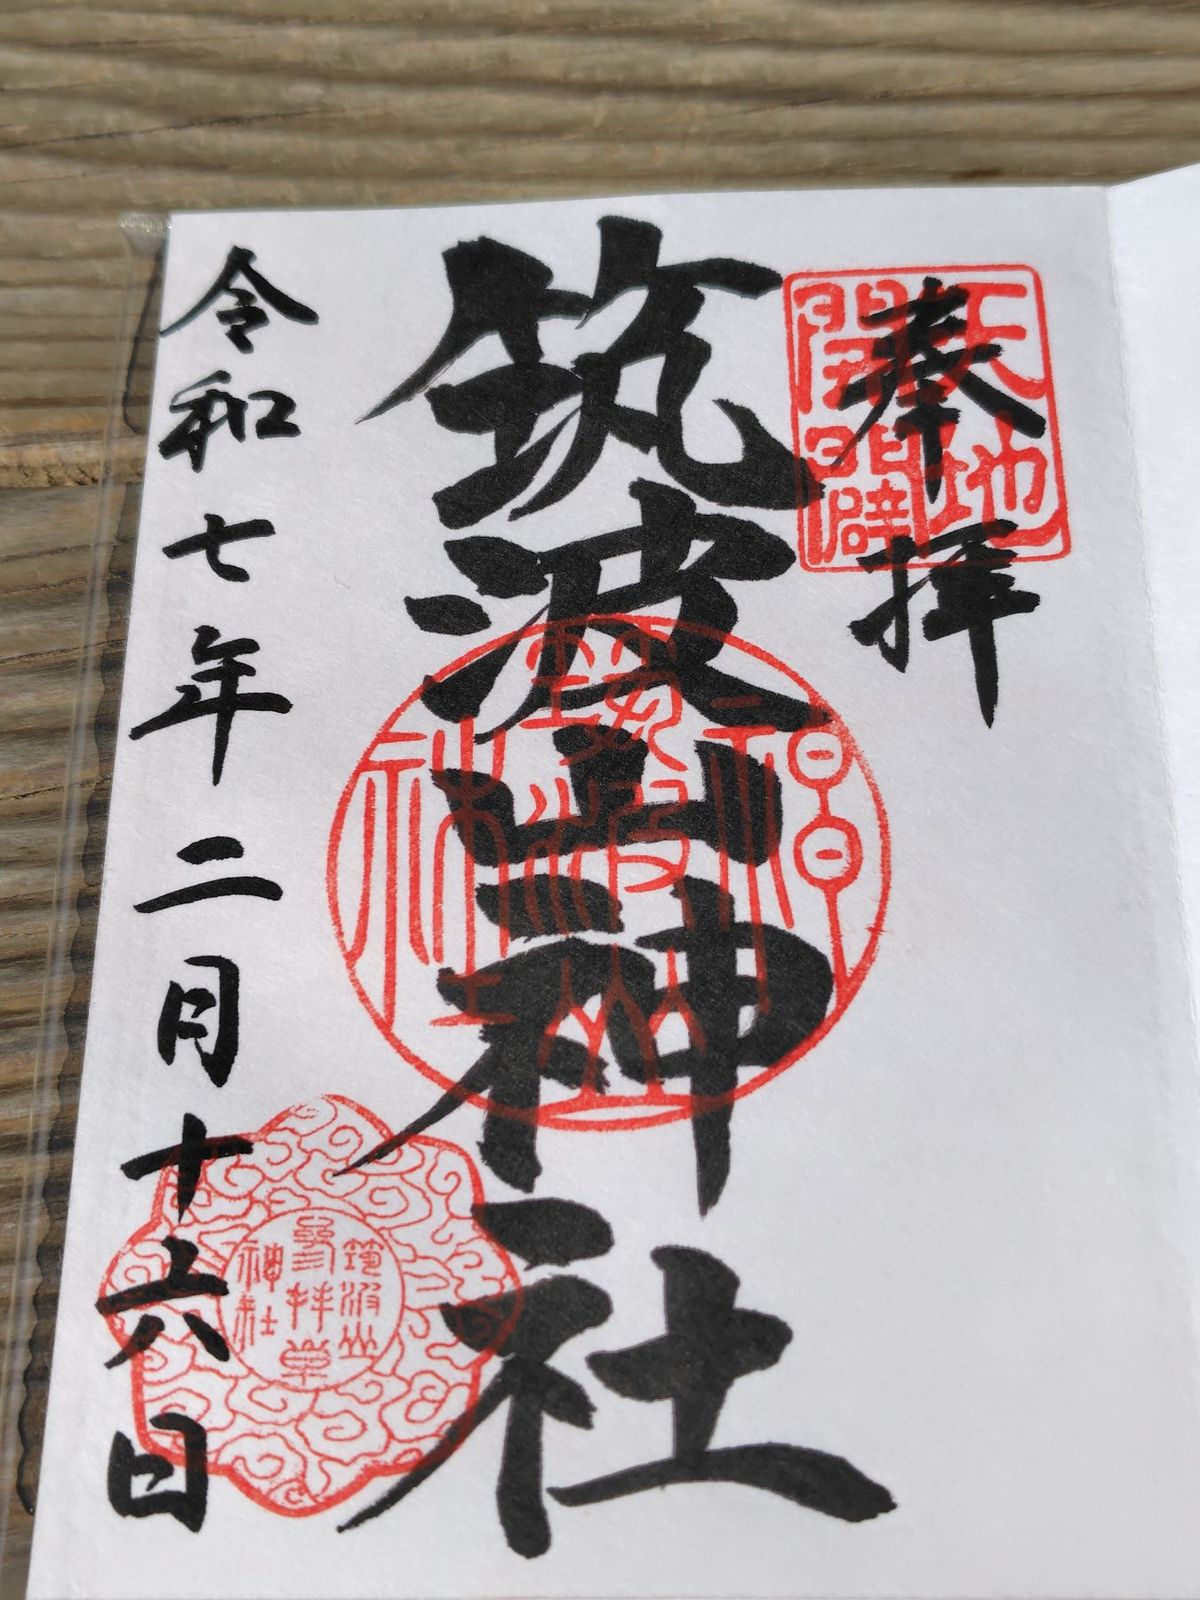 奉拝
天地
開闢
筑波山神社
令和七年二月十六日
筑波山
参拝章
神社